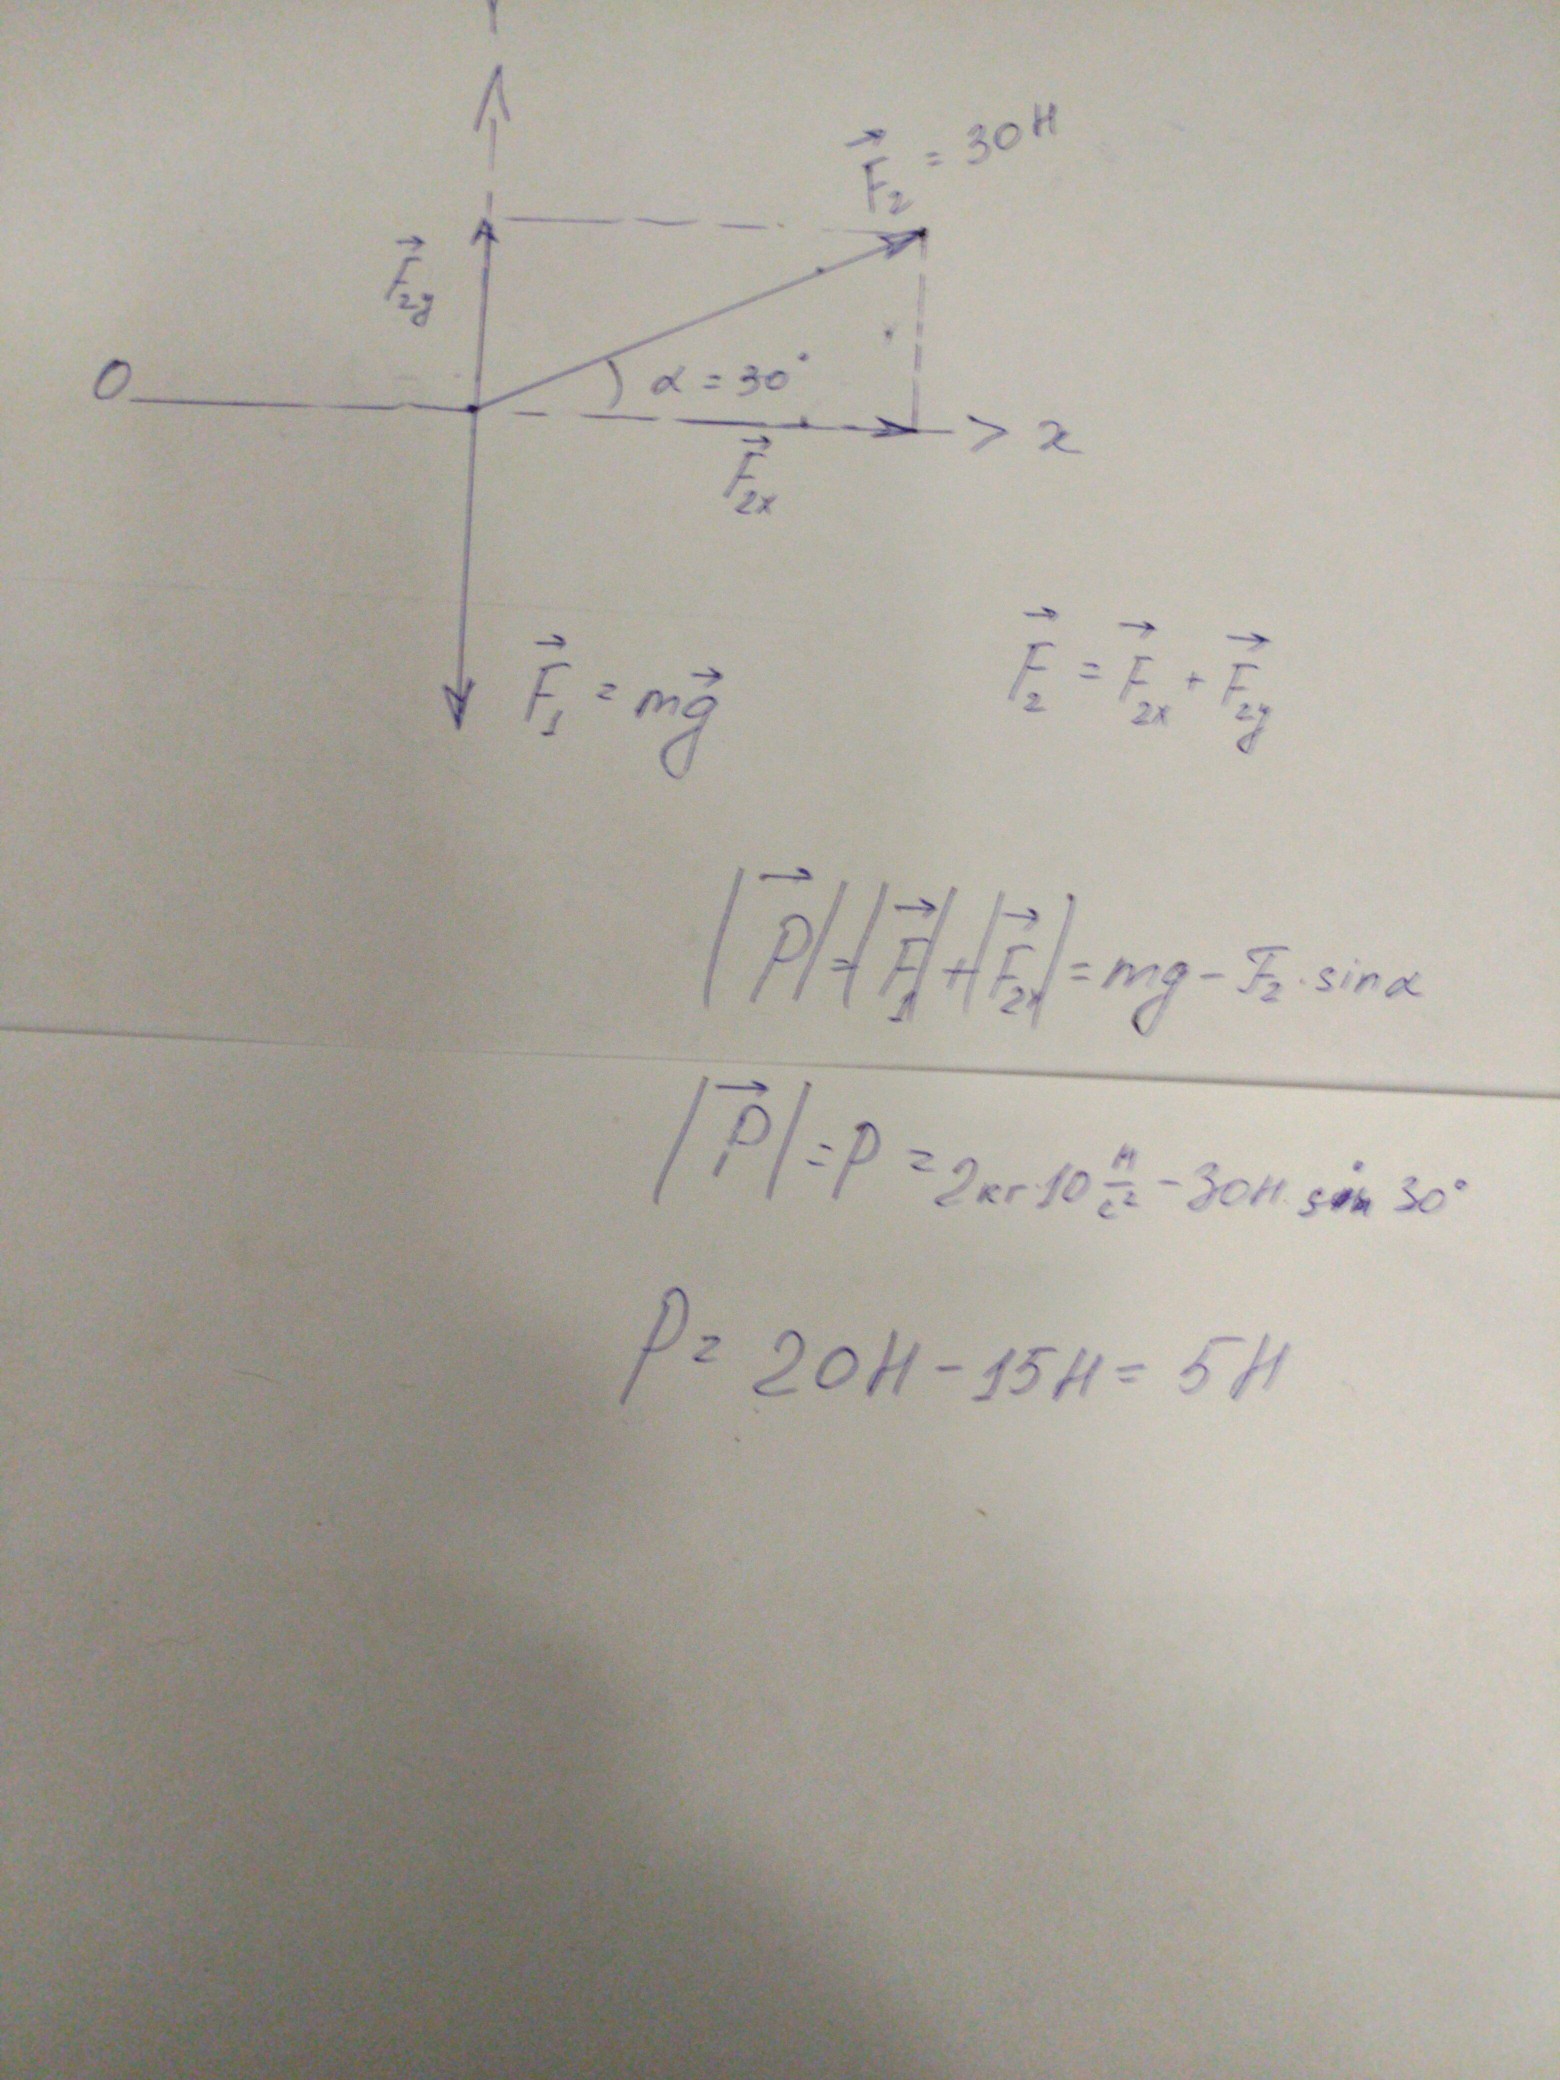 F⃗₂ = 30Н
F⃗₂y
O
α = 30°
x
F⃗₂x
F⃗₁ = mg⃗
F⃗₂ = F⃗₂x + F⃗₂y
|P⃗| = |F⃗₁| + |F⃗₂x| = mg - F₂ · sinα
|P⃗| = P = 2кг·10 м/с² - 30Н · sin 30°
P = 20Н - 15Н = 5Н